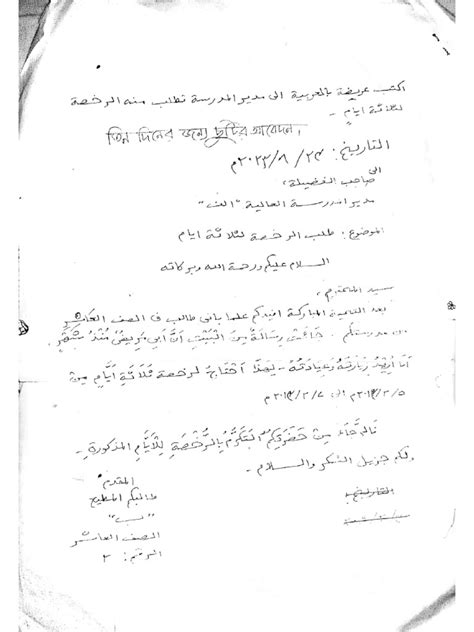 اكتب عريضة بالعربية الى مدير المدرسة تطلب منه الرخصة
لثلاثة ايام -
তিন দিনের জন্যে ছুটির আবেদন,
التاريخ: ٢٤ / ٨ / ٢٠٢٣م
الى
صاحب الفضيلة،
مدير المدرسة العالية "الف"
الموضوع: طلب الرخصة لثلاثة ايام
السلام عليكم ورحمة الله وبركاته
سيد المحترم،
بعد التحية المباركة افيدكم علما بانى طالب فى الصف العاشر
من مدرستكم. جائت رسالة من البيت ان أبي مريض منذ شهر
أنا أريد زيارته وعيادته - أحتاج لرخصة ثلاثة أيام من
الى
من حضرتكم التكرم بالرخصة للأيام المذكورة -
لكم جزيل الشكر والسلام -
المقدم
طالبكم المطيع
"ب"
الصف العاشر
الرقم: ٢
التاريخ: